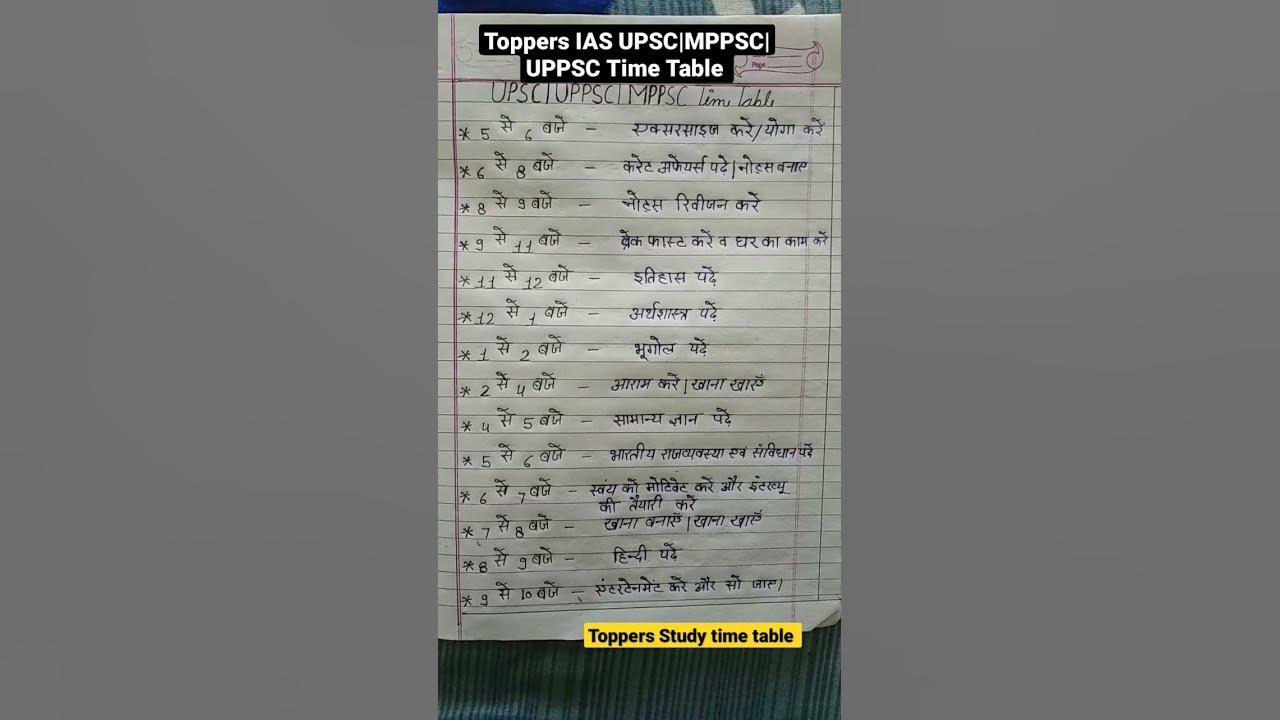 Toppers IAS UPSC|MPPSC|
UPPSC Time Table
Page
UPSC|UPPSC|MPPSC Tim Table
* 5 से 6 बजे - एक्सरसाइज करे/योगा करें
* 6 से 8 बजे - करेट अफेयर्स पढ़े|नोट्स बनाए
* 8 से 9 बजे - नोट्स रिवीजन करें
* 9 से 11 बजे - ब्रेक फास्ट करें व घर का काम करें
* 11 से 12 बजे - इतिहास पढ़ें
* 12 से 1 बजे - अर्थशास्त्र पढ़ें
* 1 से 2 बजे - भूगोल पढ़ें
* 2 से 4 बजे - आराम करें|खाना खाएँ
* 4 से 5 बजे - सामान्य ज्ञान पढ़ें
* 5 से 6 बजे - भारतीय राजव्यवस्था एव संविधान पढ़ें
* 6 से 7 बजे - स्वंय को मोटिवेट करें और इंटरव्यू
की तैयारी करें
* 7 से 8 बजे - खाना बनाएँ|खाना खाएँ
* 8 से 9 बजे - हिन्दी पढ़ें
* 9 से 10 बजे - एंटरटेनमेंट करें और सो जाए।
Toppers Study time table